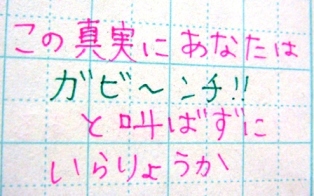 この真実にあなたは
ガビ～ンチ!!
と叫ばずに
いらりょうか